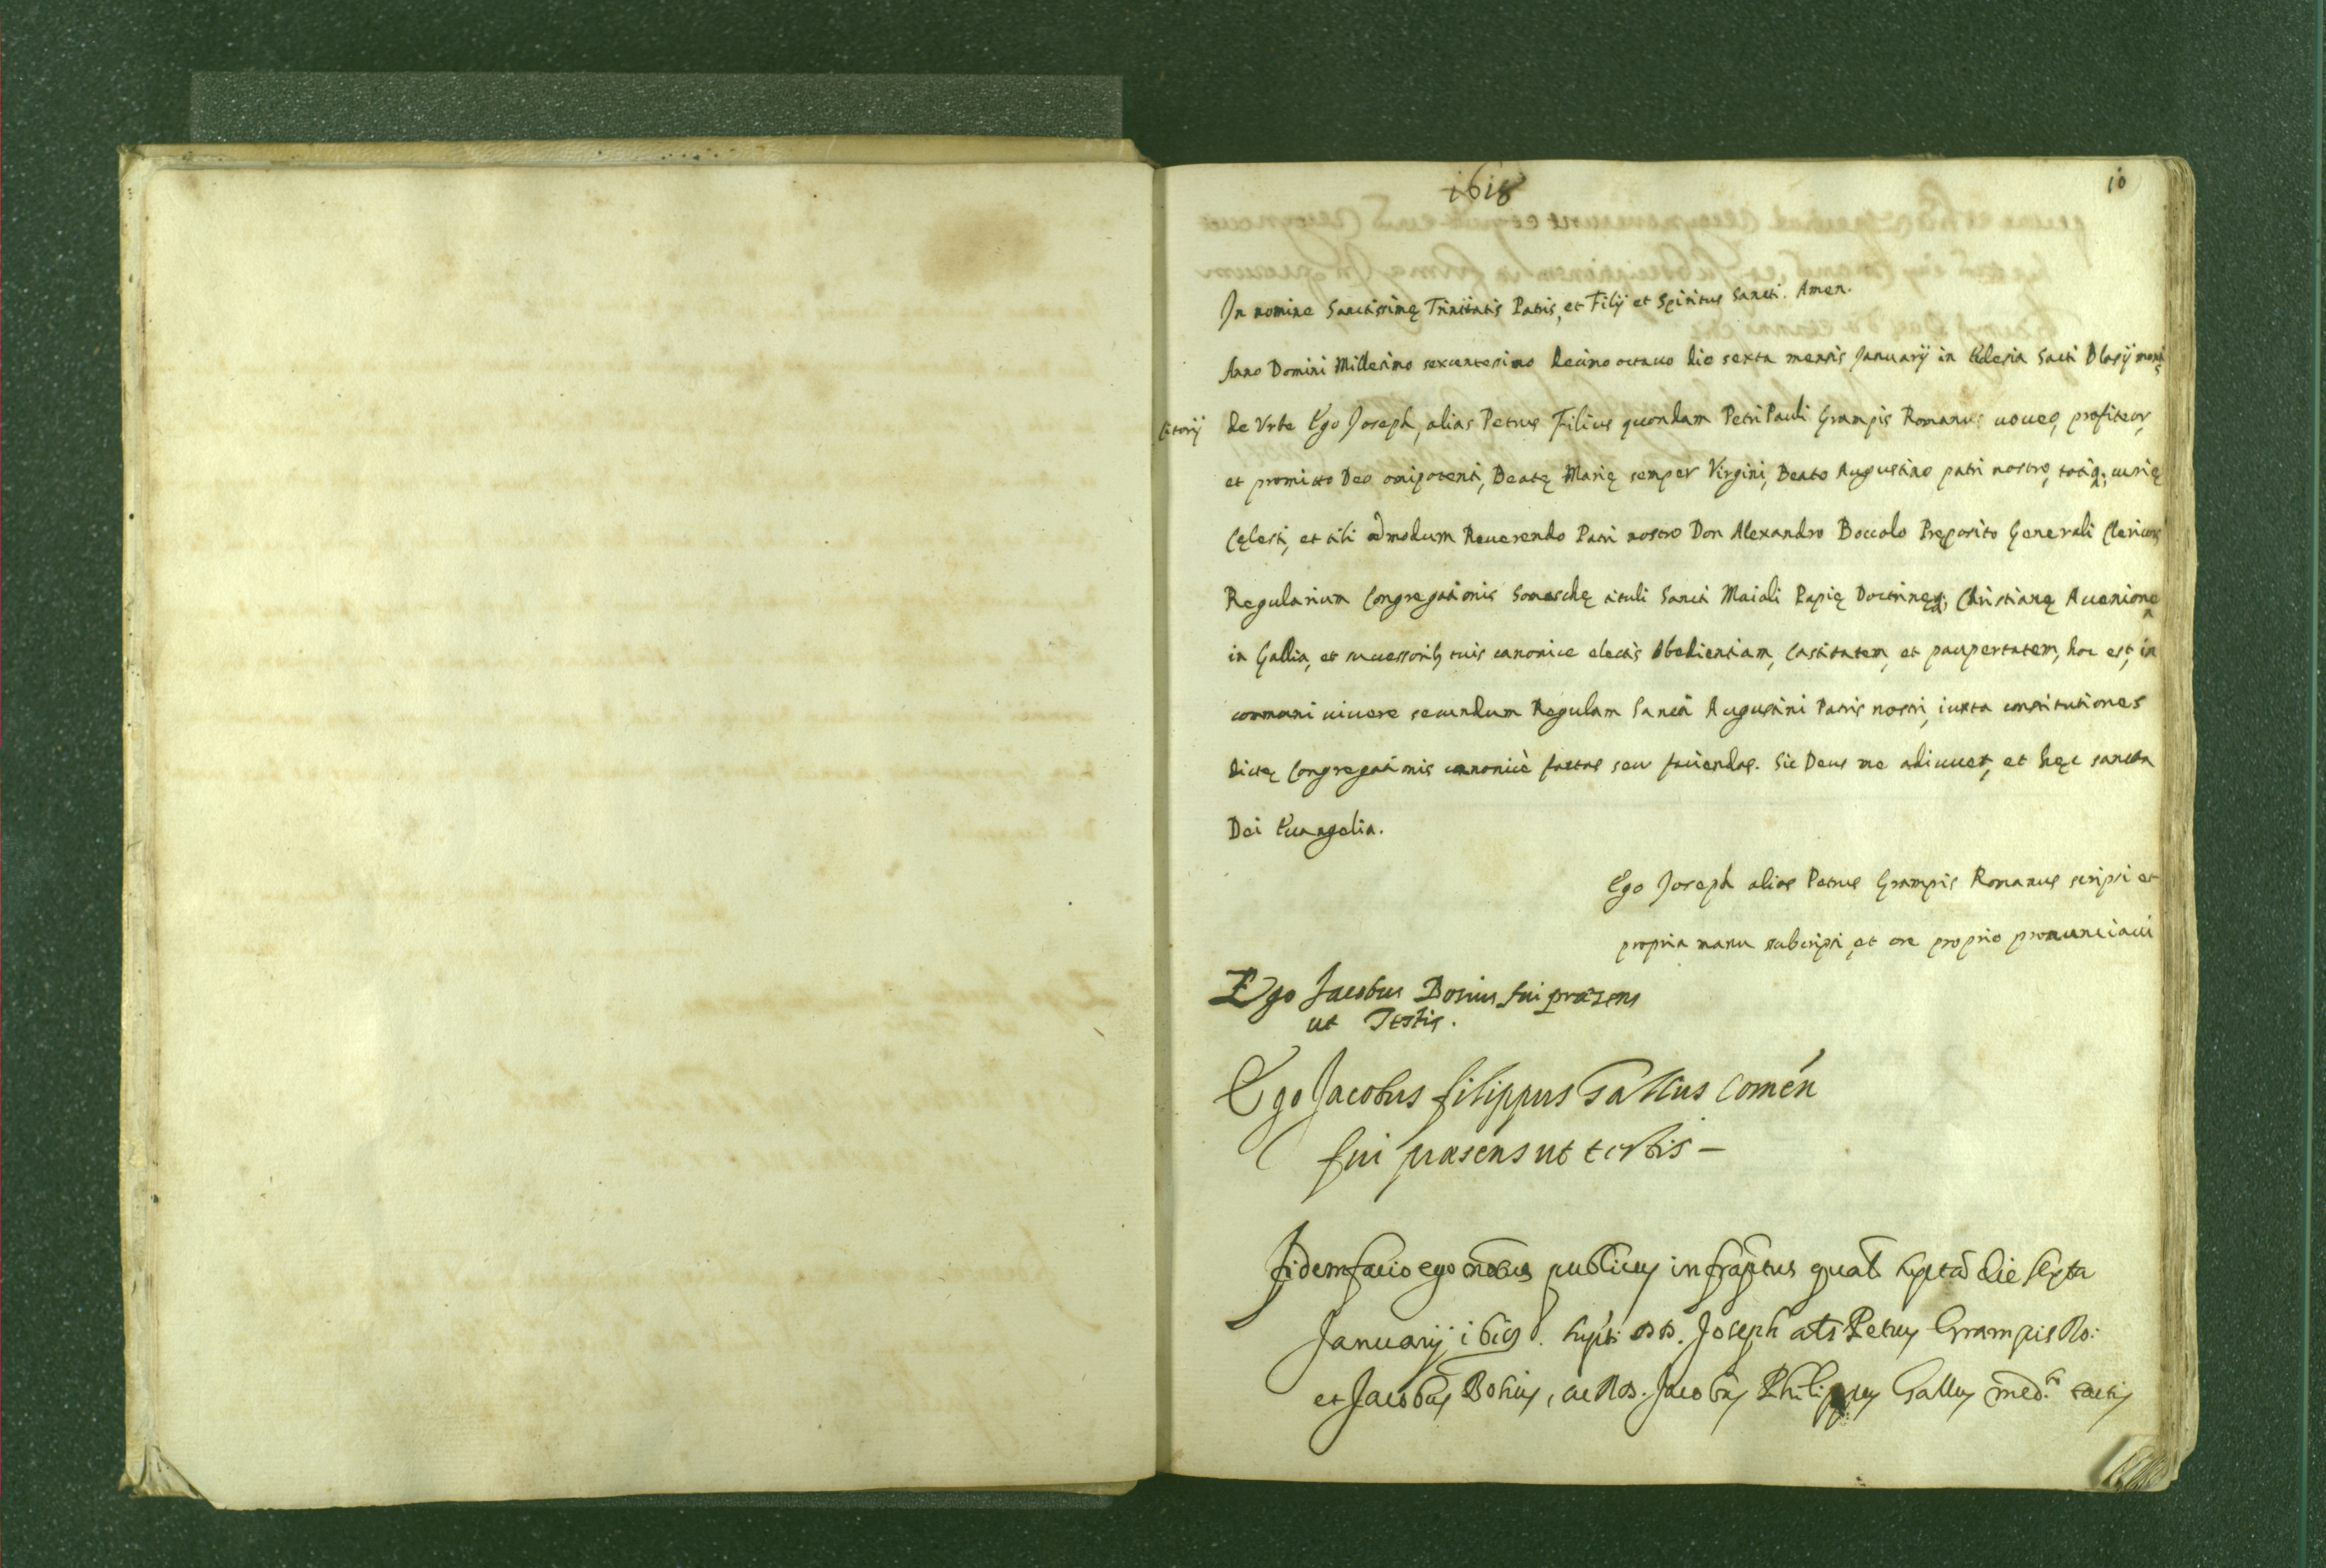 1618
10
In nomine Sanctissimę Trinitatis Patris, et Filij et Spiritus Sancti. Amen.
Anno Domini Millesimo sexcentesimo decimo octauo die sexta mensis Januarij in Eclesia Sacti Blasij montis
citorij de Vrbe Ego Joseph, alias Petrus Filius quondam Petri Pauli Grampis Romanus uoueo, profiteor,
et promitto Deo onipotenti, Beatę Marię semper Virgini, Beato Augustino patri nostro, totiq; curię
Cęlesti, et tibi admodum Reuerendo Patri nostro Don Alexandro Boccolo Pręposito Generali Clericorũ
Regularium Congregationis Somaschę tituli Sancti Maioli Papię Doctrinęq; Christianę Auenione
in Gallia, et successorib; tuis canonice electis Obedientiam, Castitatem, et paupertatem, hoc est, in
communi uiuere secundum Regulam Sancti Augustini Patris nostri, iuxta constitutiones
dictę Congregationis canonicè factas seu faciendas. Sic Deus me adiuuet, et hęc sancta
Dei Euangelia.
Ego Joseph alias Petrus Grampis Romanus scripsi et
propria manu subscripsi, et ore proprio pronunciaui
Ego Jacobus Bosius fui præsens
ut Testis.
Ego Jacobus filippus Gallus Comén
fui præsens ut testis –
fidem facio ego publicus infrascriptus die sexta
Januarij 1618. Joseph als Petrus Grampis Ro:
et Jacobus Bosius, ac Jacobus Philippus Gallus tactis